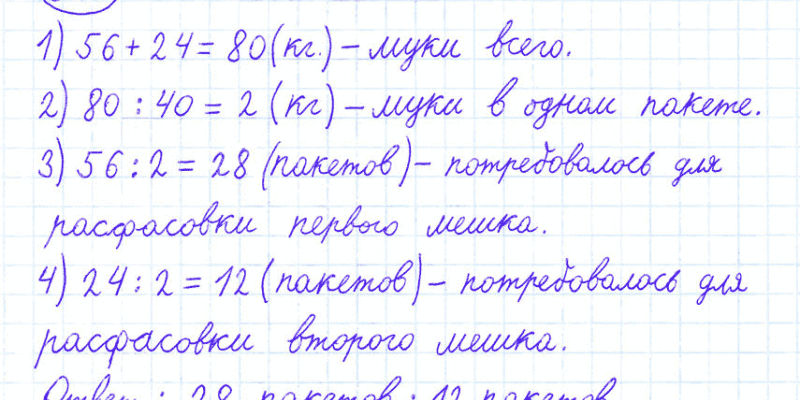 1) 56 + 24 = 80 (кг.) – муки всего.
2) 80 : 40 = 2 (кг) – муки в одном пакете.
3) 56 : 2 = 28 (пакетов) – потребовалось для
расфасовки первого мешка.
4) 24 : 2 = 12 (пакетов) – потребовалось для
расфасовки второго мешка.
Ответ : 28 пакетов ; 12 пакетов